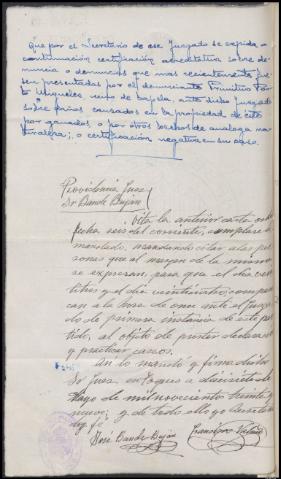 Que por el Secretario de ese Juzgado se expida a
continuación certificación acreditativa sobre de-
nuncia o denuncias que mas recientemente fue-
sen presentadas por el denunciante Primitivo
vecino de ante dicho Juzgado
sobre daños causados en la propiedad de este
por ganados o por otros hechos de analoga na-
turaleza; o certificación negativa en su caso.
Providencia Juez
Sr Bande Bujan
Vista la anterior carta orden
fecha seis del corriente, cumplase lo
mandado, mandando citar a las per-
sonas que al margen de la misma
se expresan, para que el dia vein-
titres y el dia veinticuatro comparez-
can a la hora de once ante el Juzga-
do de primera instancia de este par-
tido, al objeto de prestar declaracion
y practicar careos.
Asi lo mandó y firma dicho
Sr Juez en Toques a diecisiete de
Mayo de mil novecientos treinta y
nueve; y de todo ello yo Secretario
doy fé
José Bande Bujan Francisco